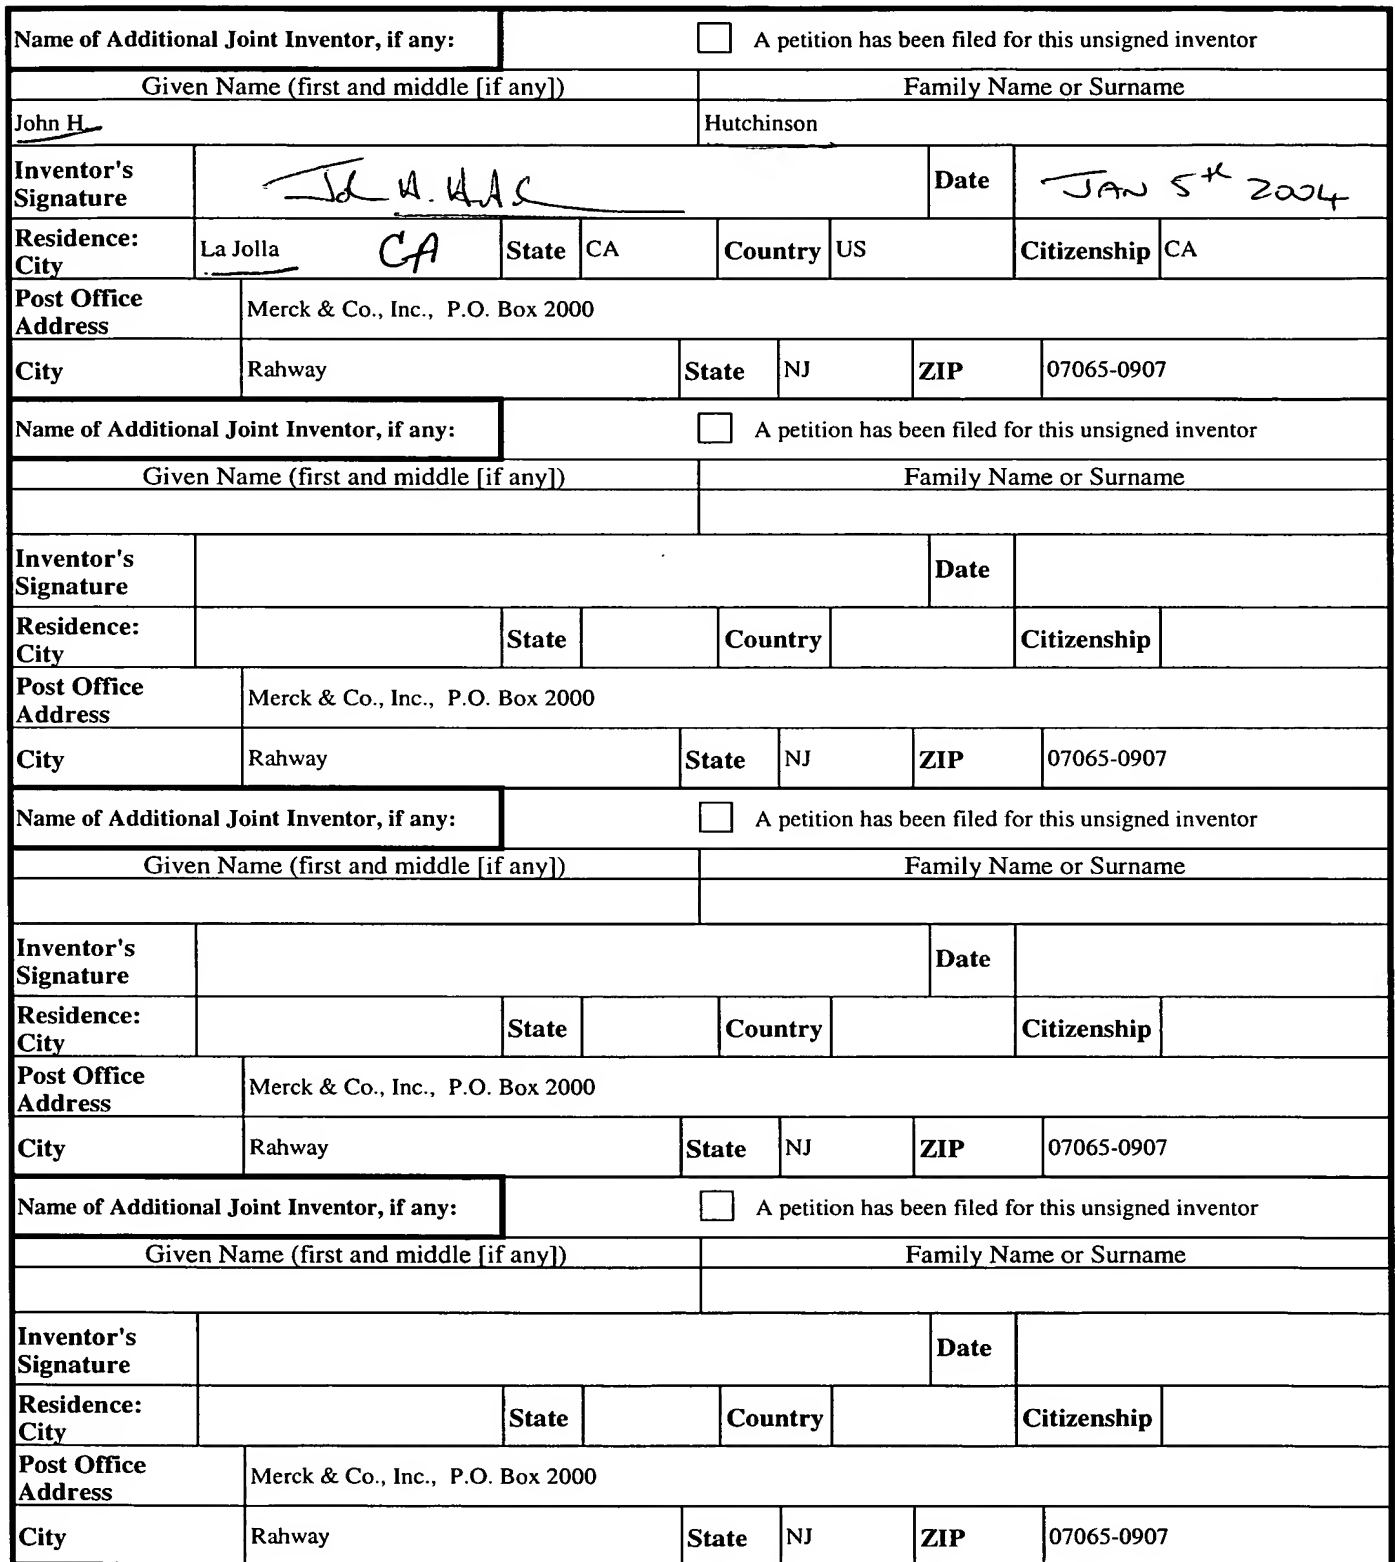 Name of Additional Joint Inventor, if any: A petition has been filed for this unsigned inventor
Given Name (first and middle [if any]) Family Name or Surname
John H. Hutchinson
Inventor's Signature Date JAN 5th 2004
Residence: City La Jolla CA State CA Country US Citizenship CA
Post Office Address Merck & Co., Inc., P.O. Box 2000
City Rahway State NJ ZIP 07065-0907
Name of Additional Joint Inventor, if any: A petition has been filed for this unsigned inventor
Given Name (first and middle [if any]) Family Name or Surname
Inventor's Signature Date
Residence: City State Country Citizenship
Post Office Address Merck & Co., Inc., P.O. Box 2000
City Rahway State NJ ZIP 07065-0907
Name of Additional Joint Inventor, if any: A petition has been filed for this unsigned inventor
Given Name (first and middle [if any]) Family Name or Surname
Inventor's Signature Date
Residence: City State Country Citizenship
Post Office Address Merck & Co., Inc., P.O. Box 2000
City Rahway State NJ ZIP 07065-0907
Name of Additional Joint Inventor, if any: A petition has been filed for this unsigned inventor
Given Name (first and middle [if any]) Family Name or Surname
Inventor's Signature Date
Residence: City State Country Citizenship
Post Office Address Merck & Co., Inc., P.O. Box 2000
City Rahway State NJ ZIP 07065-0907